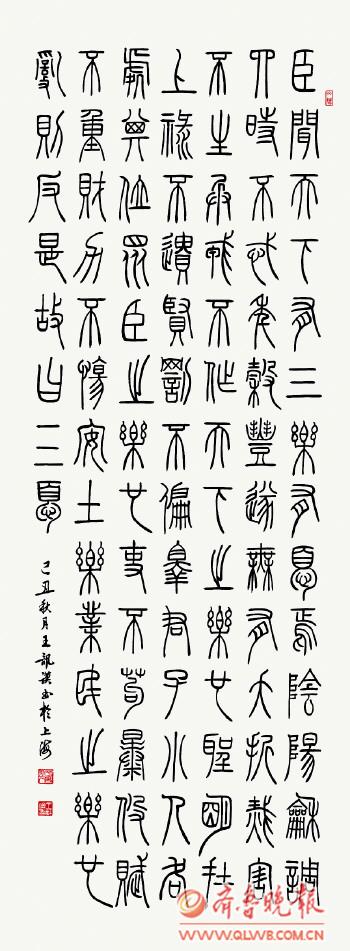 臣聞天下有三樂有憂焉陰陽龢調
四時不忒年穀豐遂無有夭折災害
不生兵戎不作天下之樂也聖明在
上祿不遺賢罰不偏辠君子小人各
處其位眾臣之樂也吏不苟暴役賦
不重財力不傷安土樂業民之樂也
亂則反是故曰三憂
己丑秋月王訊謨書於上海
齐鲁晚报
WWW.QLWB.COM.CN